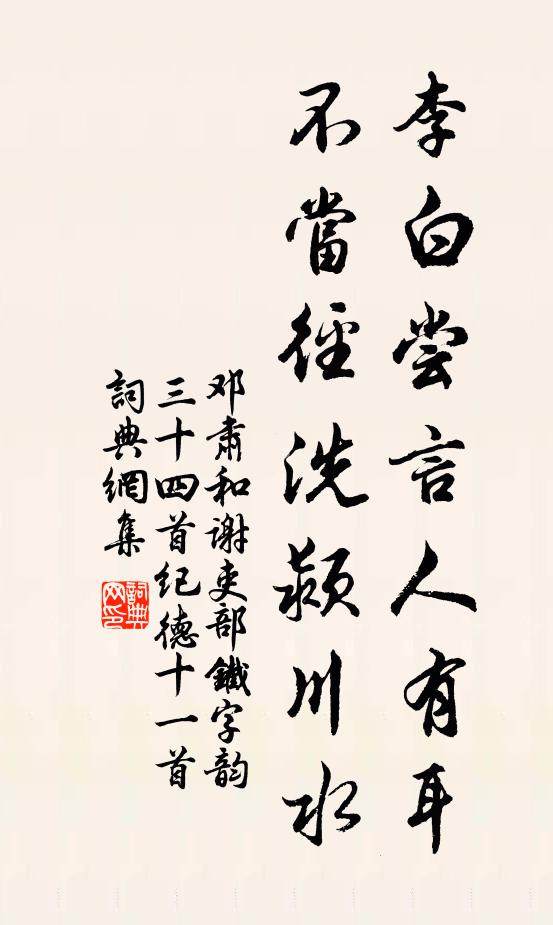 李白尝言人有耳
不當徑洗潁川水
邓肅和谢吏部鐵字韵
三十四首纪德十一首
詞典網集
詞典网印